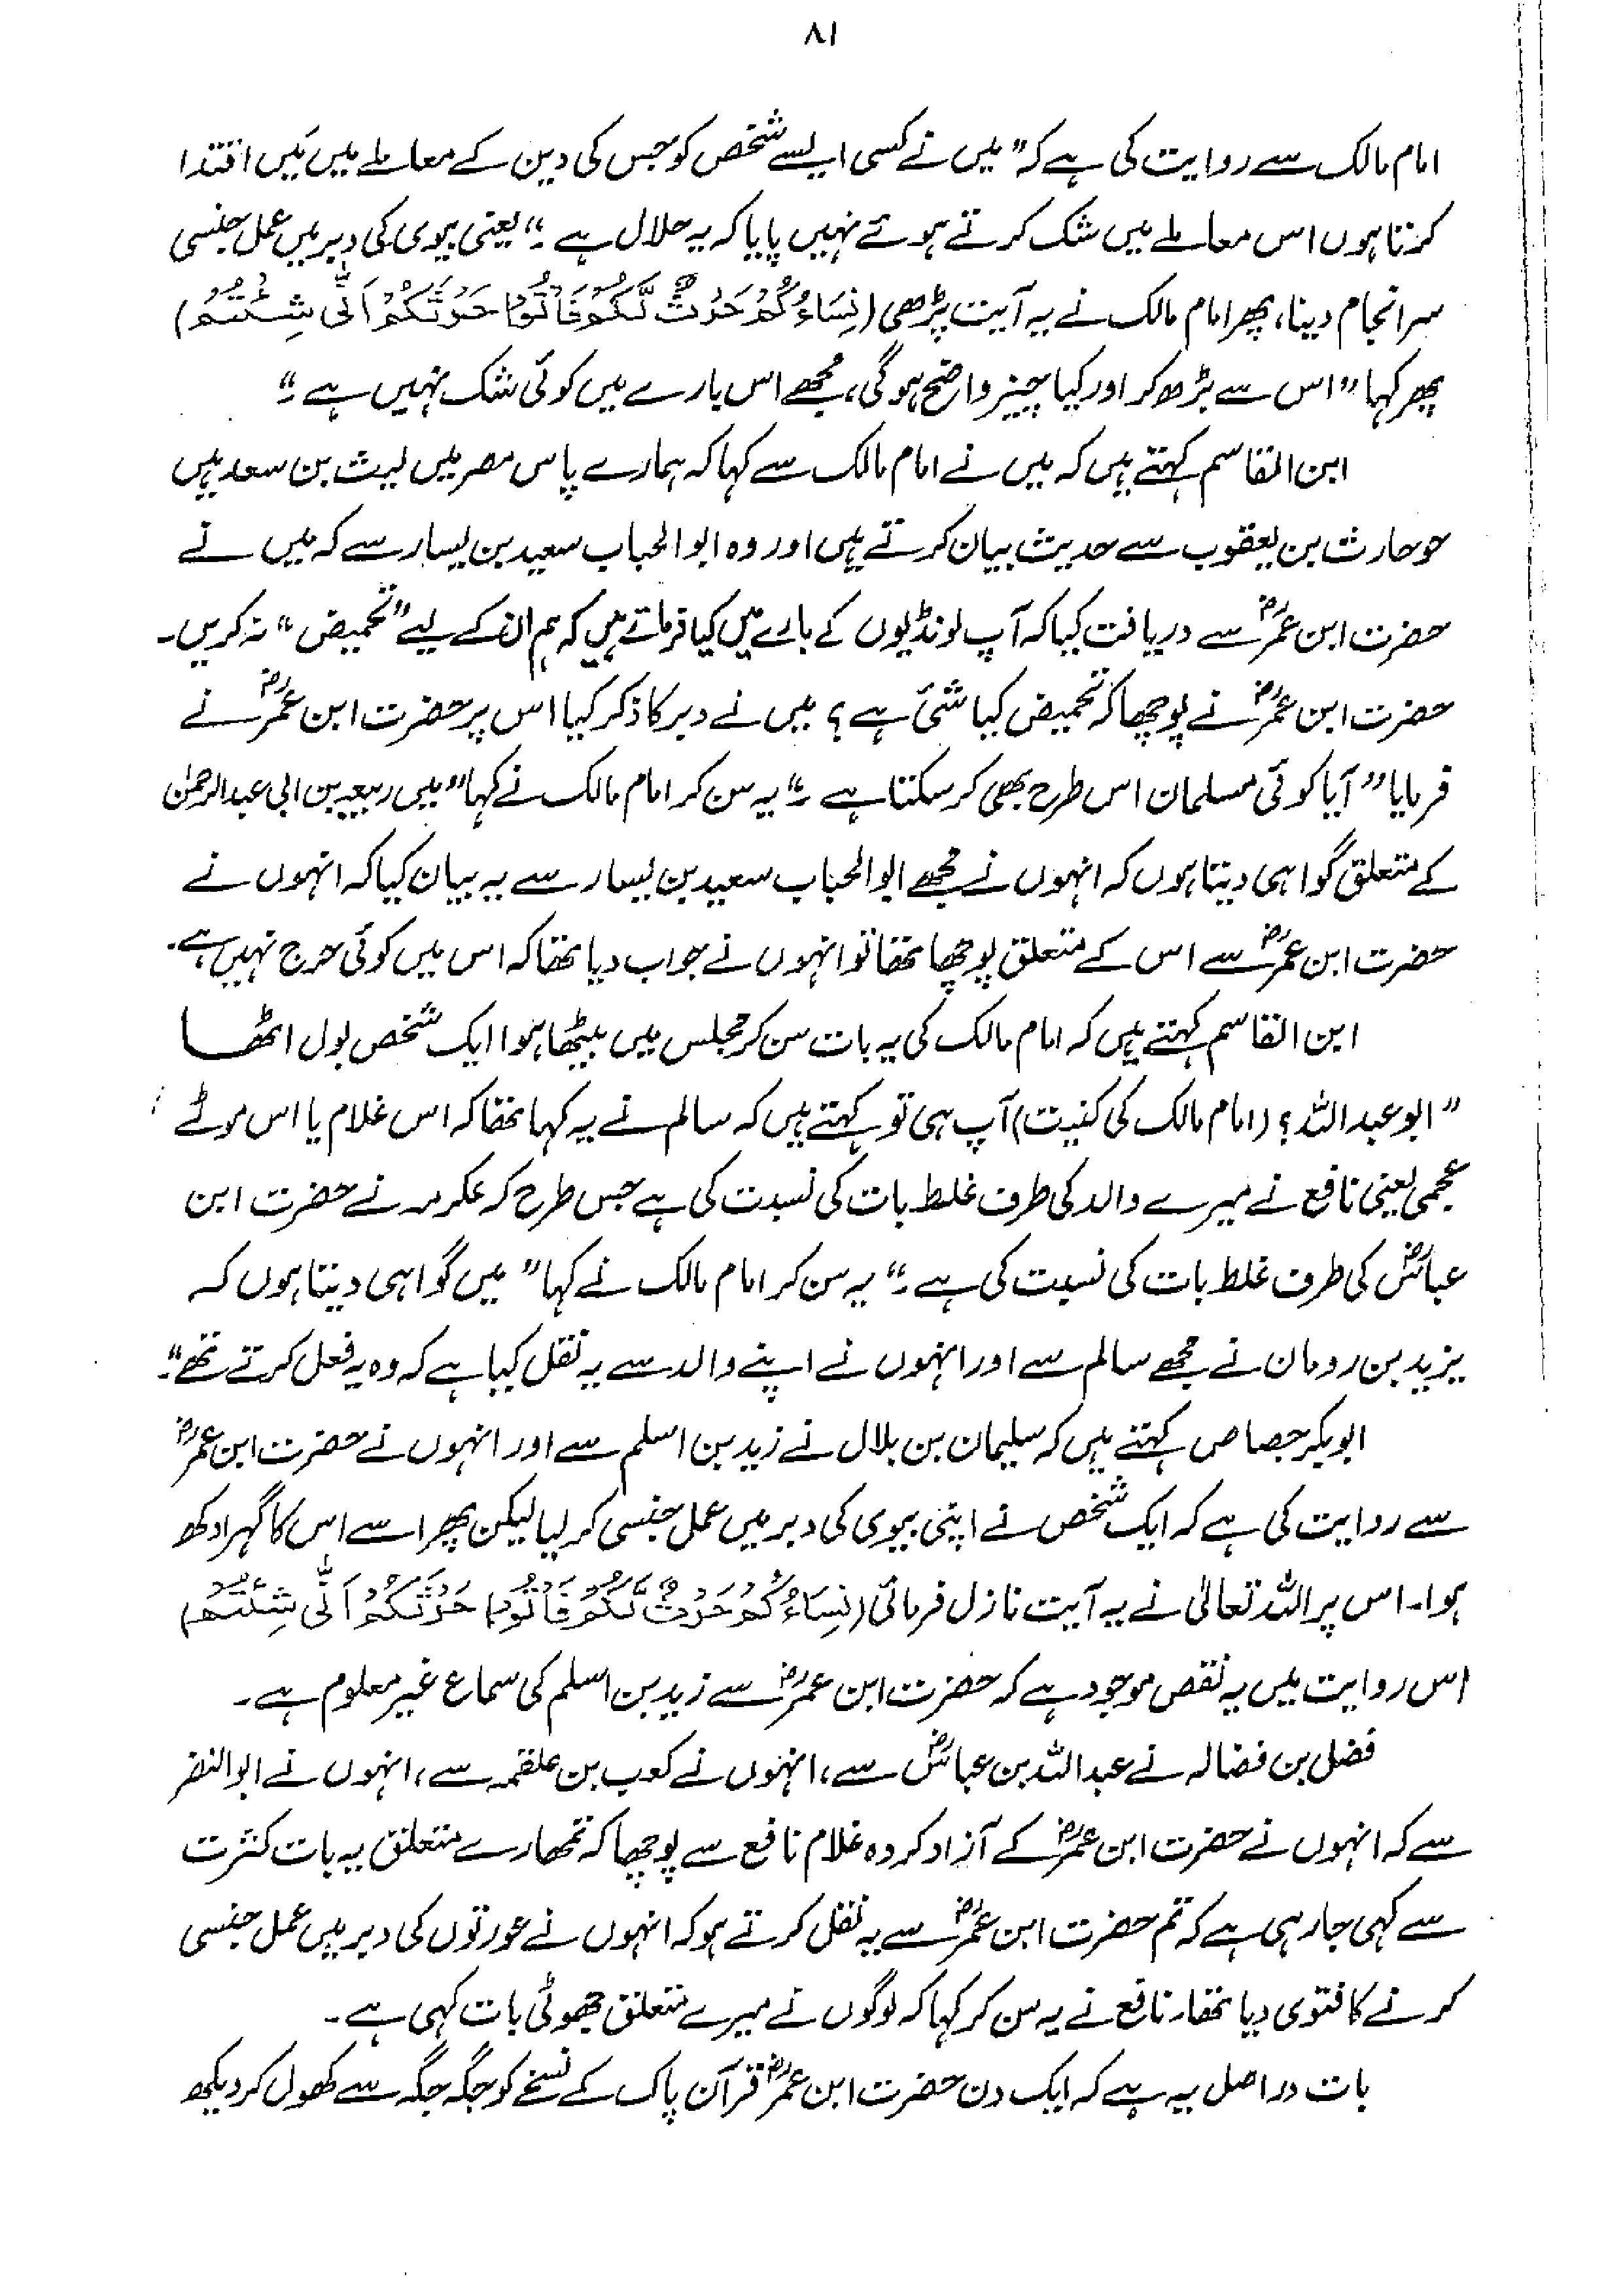 ۸۱
امام مالک سے روایت کی ہے کہ ”میں نے کسی ایسے شخص کو جس کی دین کے معاملے میں مَیں اقتدا
کرتا ہوں اس معاملے میں شک کرتے ہوئے نہیں پایا کہ یہ حلال ہے ۔“ یعنی بیوی کی دبر میں عمل جنسی
سرانجام دینا، پھر امام مالک نے یہ آیت پڑھی (نِسَاءُكُمْ حَرْثٌ لَّكُمْ فَأْتُوا حَرْثَكُمْ اَنّٰی شِئْتُمْ)
پھر کہا ”اس سے بڑھ کر اور کیا چیز واضح ہو گی، مجھے اس بارے میں کوئی شک نہیں ہے ۔“
ابن القاسم کہتے ہیں کہ میں نے امام مالک سے کہا کہ ہمارے پاس مصر میں لیث بن سعد ہیں
جو حارث بن یعقوب سے حدیث بیان کرتے ہیں اور وہ ابو الحباب سعید بن یسار سے کہ میں نے
حضرت ابن عمرؓ سے دریافت کیا کہ آپ لونڈیوں کے بارے میں کیا فرماتے ہیں کہ ہم ان کے لیے ”تحمیض“ نہ کریں۔
حضرت ابن عمرؓ نے پوچھا کہ تحمیض کیا شئی ہے ؟ میں نے دبر کا ذکر کیا اس پر حضرت ابن عمرؓ نے
فرمایا ”آیا کوئی مسلمان اس طرح بھی کر سکتا ہے ۔“ یہ سن کر امام مالک نے کہا ”میں ربیعہ بن ابی عبدالرحمٰن
کے متعلق گواہی دیتا ہوں کہ انہوں نے مجھے ابو الحباب سعید بن یسار سے یہ بیان کیا کہ انہوں نے
حضرت ابن عمرؓ سے اس کے متعلق پوچھا تھا تو انہوں نے جواب دیا تھا کہ اس میں کوئی حرج نہیں ہے۔
ابن القاسم کہتے ہیں کہ امام مالک کی یہ بات سن کر مجلس میں بیٹھا ہوا ایک شخص بول اٹھا
”ابو عبداللہ ؟ (امام مالک کی کنیت) آپ ہی تو کہتے ہیں کہ سالم نے یہ کہا تھا کہ اس غلام یا اس موٹے
عجمی یعنی نافع نے میرے والد کی طرف غلط بات کی نسبت کی ہے جس طرح کہ عکرمہ نے حضرت ابن
عباسؓ کی طرف غلط بات کی نسبت کی ہے ۔“ یہ سن کر امام مالک نے کہا ” میں گواہی دیتا ہوں کہ
یزید بن رومان نے مجھے سالم سے اور انہوں نے اپنے والد سے یہ نقل کیا ہے کہ وہ یہ فعل کرتے تھے“۔
ابوبکر جصاص کہتے ہیں کہ سلیمان بن بلال نے زید بن اسلم سے اور انہوں نے حضرت ابن عمرؓ
سے روایت کی ہے کہ ایک شخص نے اپنی بیوی کی دبر میں عمل جنسی کر لیا لیکن پھر اسے اس کا گہرا دکھ
ہوا۔ اس پر اللہ تعالیٰ نے یہ آیت نازل فرمائی (نِسَاءُكُمْ حَرْثٌ لَّكُمْ فَأْتُوا حَرْثَكُمْ اَنّٰی شِئْتُمْ)
اس روایت میں یہ نقص موجود ہے کہ حضرت ابن عمرؓ سے زید بن اسلم کی سماع غیر معلوم ہے ۔
فضل بن فضالہ نے عبداللہ بن عباسؓ سے، انہوں نے کعب بن علقمہ سے، انہوں نے ابو النضر
سے کہ انہوں نے حضرت ابن عمرؓ کے آزاد کردہ غلام نافع سے پوچھا کہ تمھارے متعلق یہ بات کثرت
سے کہی جا رہی ہے کہ تم حضرت ابن عمرؓ سے یہ نقل کرتے ہو کہ انہوں نے عورتوں کی دبر میں عمل جنسی
کرنے کا فتوی دیا تھا، نافع نے یہ سن کر کہا کہ لوگوں نے میرے متعلق جھوٹی بات کہی ہے ۔
بات دراصل یہ ہے کہ ایک دن حضرت ابن عمرؓ قرآن پاک کے نسخے کو جگہ جگہ سے کھول کر دیکھ